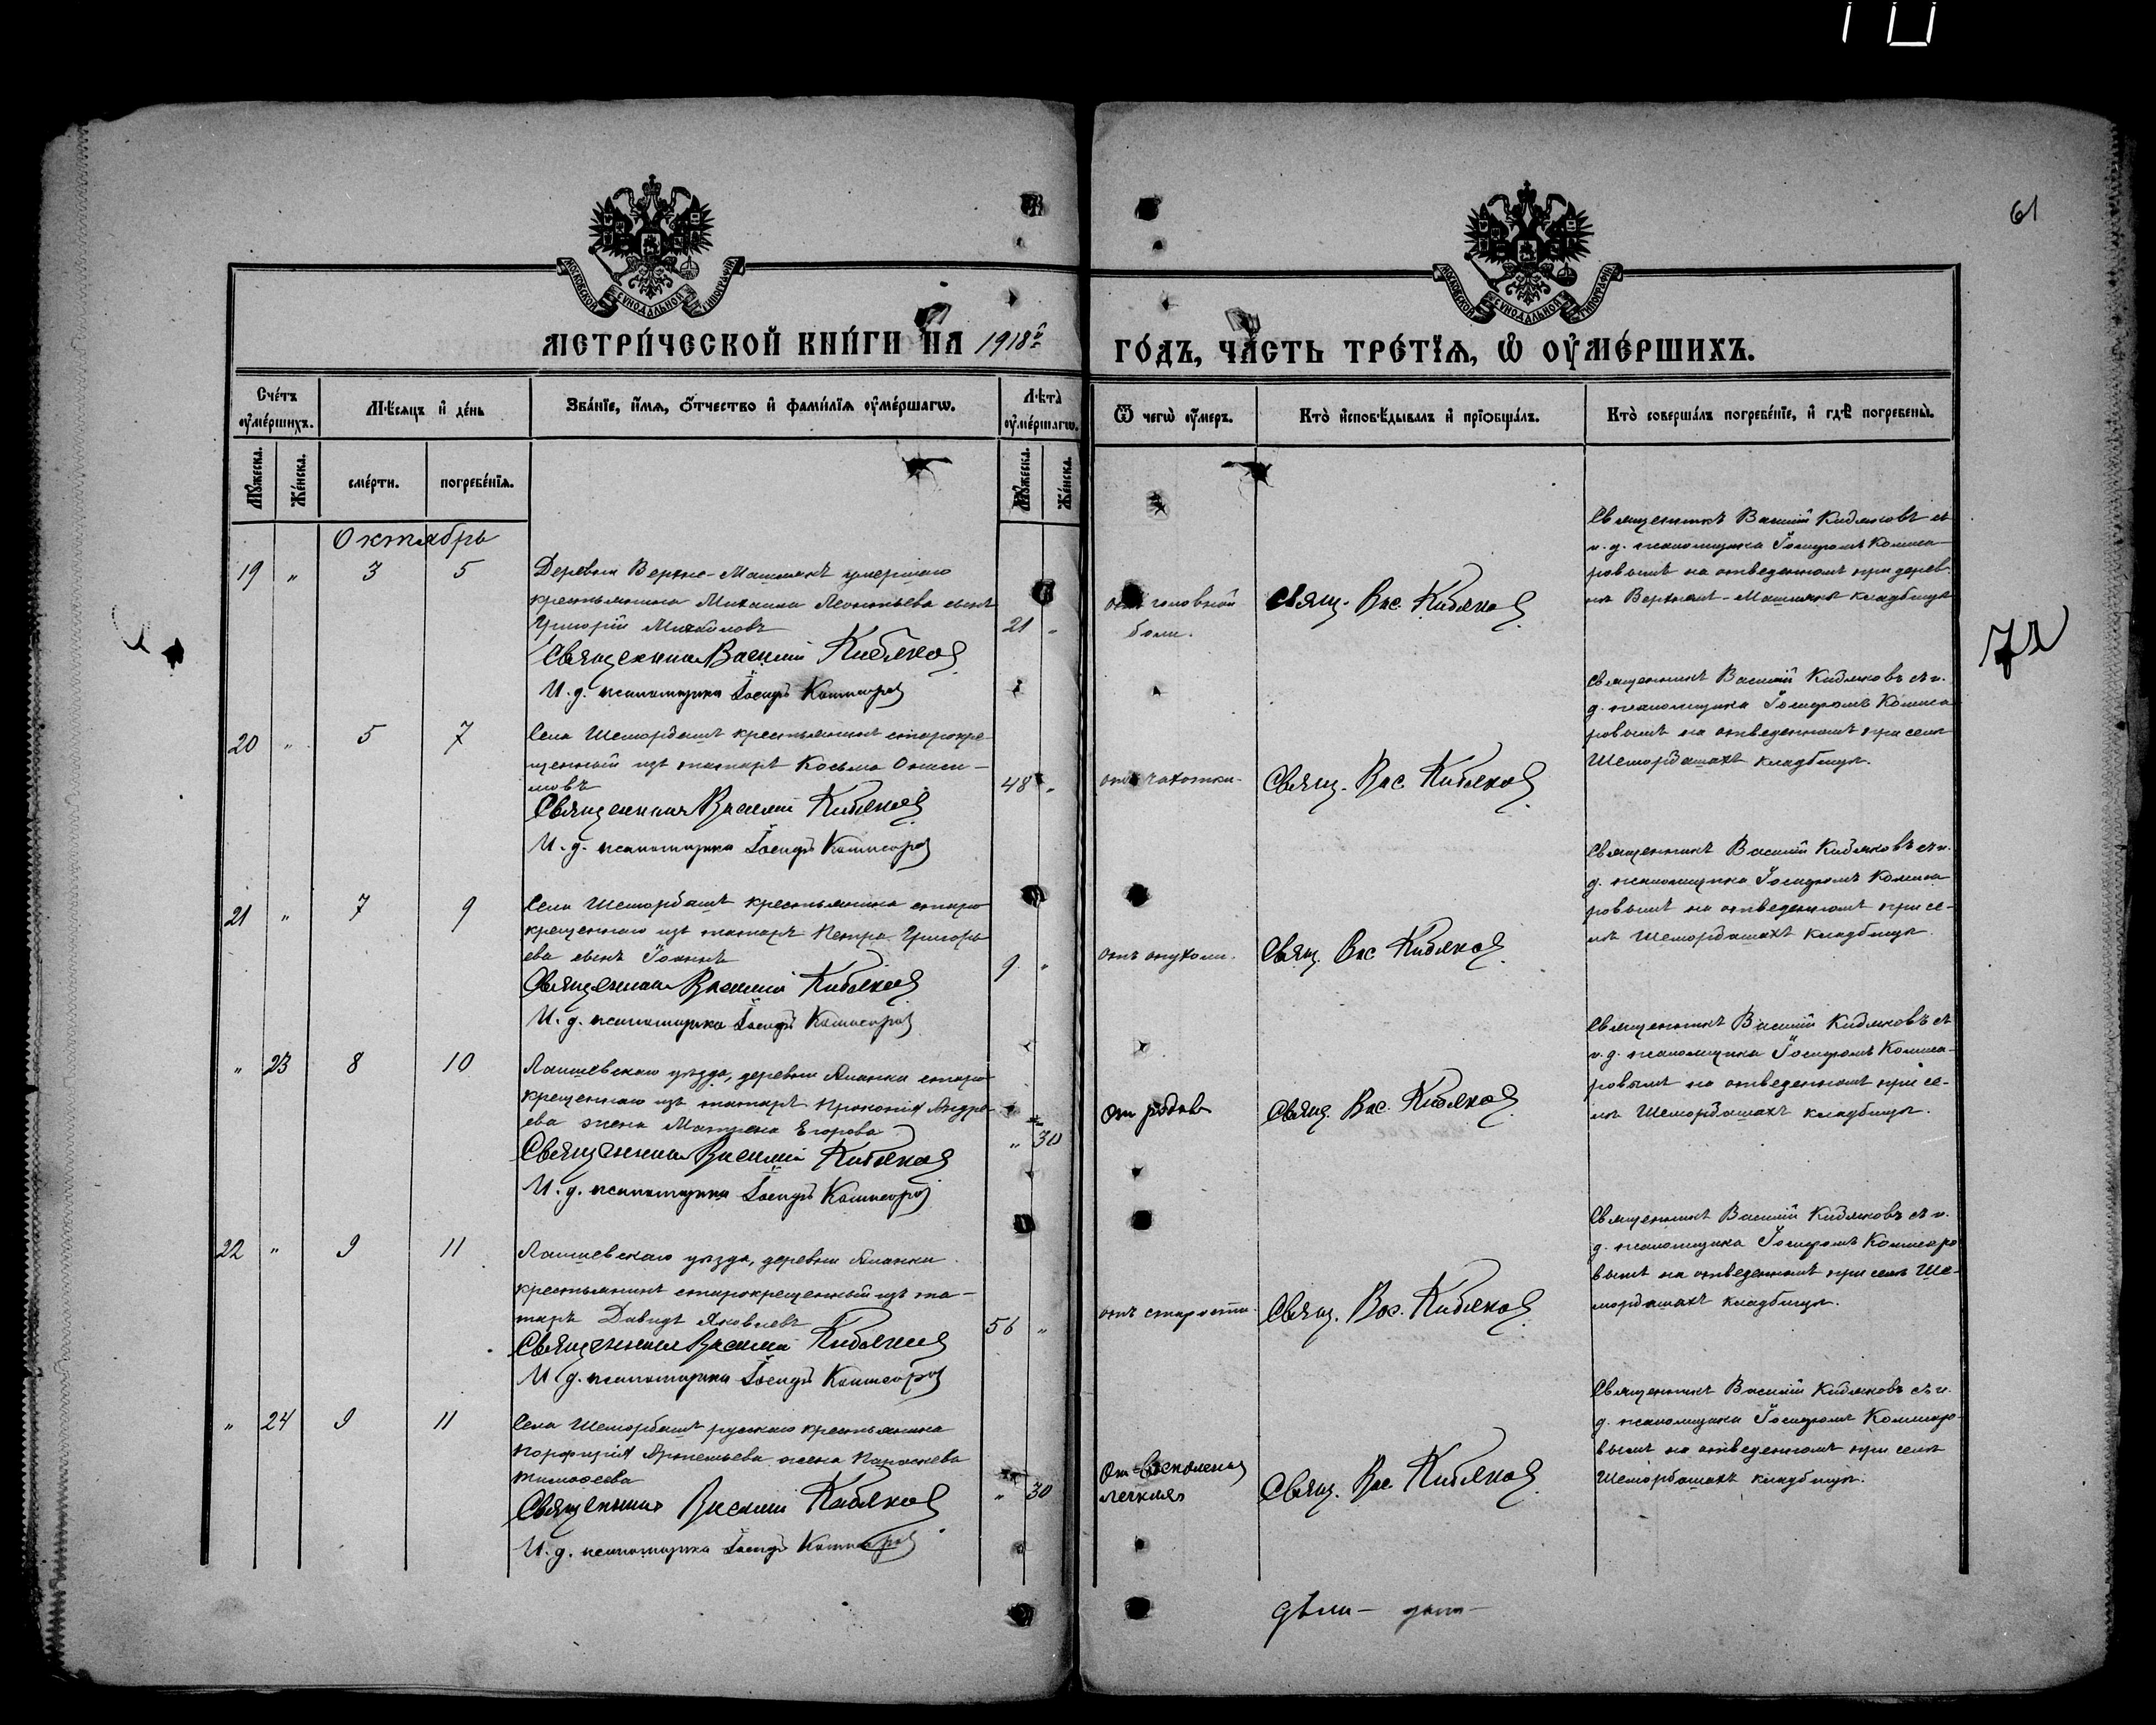 61
МОСКОВСКОЙ СѴНОДАЛЬНОЙ ТИПОГРАФІИ
МОСКОВСКОЙ СѴНОДАЛЬНОЙ ТИПОГРАФІИ
МЕТРИ́ЧЕСКОЙ КНИ́ГИ НА 1918 й
ГО́ДЪ, ЧА́СТЬ ТРЕ́ТІѦ, Ѡ ОУ҆МЕ́РШИХЪ.
Сче́тъ оу҆ме́ршихъ.
Мѣ́сяцъ и҆ де́нь
Зва́нїе, и҆́мѧ, ѻ҆́тчество и҆ фами́лїѧ оу҆ме́ршагѡ.
Лѣ́та оу҆ме́ршагѡ.
Ѿ чегѡ̀ оу҆́меръ.
Кто̀ и҆сповѣ́дывалъ и҆ прїѡбща́лъ.
Кто̀ соверша́лъ погребе́нїе, и҆ гдѣ̀ погребены̀.
Мꙋ́жеска.
Же́нска.
сме́рти.
погребе́нїѧ.
Мꙋ́жеска.
Же́нска.
Октябрь
19 " 3 5
Деревни Верхне-Машлякъ умершаго
крестьянина Михаила Леонтьева сынъ
Григорій Михайловъ
21 "
Священникъ Василий Кибяков
И. д. псаломщика Іосифъ Комисаров
отъ головной
боли.
Свящ. Вас. Кибяков
Священникъ Василій Кибяковъ съ
и. д. псаломщика Іосифомъ Комиса-
ровымъ на отведенномъ при дерев-
нѣ Верхнемъ-Машлякѣ кладбищѣ
72
20 " 5 7
Села Шемордашъ крестьянинъ старокре-
щенный изъ татаръ Косьма Ониси-
мовъ
48 "
Священник Василий Кибяков
И. д. псаломщика Іосифъ Комисаров
отъ чахотки.
Свящ. Вас Кибяков
Священникъ Василій Кибяковъ съ и.
д. псаломщика Іосифомъ Комиса
ровымъ на отведенномъ при селѣ
Шемордашахъ кладбищѣ.
21 " 7 9
Села Шемордашъ крестьянина старо
крещеннаго изъ татаръ Петра Григорь
ева сынъ Іоаннъ
9 "
Священник Василий Кибяков
И. д. псаломщика Іосифъ Комисаров
отъ опухоли.
Свящ. Вас Кибяков
Священникъ Василій Кибяковъ съ и.
д. псаломщика Іосифомъ Комиса
ровымъ на отведенномъ при се-
лѣ Шемордашахъ кладбищѣ.
" 23 8 10
Лаишевскаго уѣзда, деревни Янанки старо
крещеннаго изъ татаръ Прокопія Андре-
ева жена Матрена Егорова
" 30
Священник Василий Кибяков
И. д. псаломщика Іосифъ Комисаров
От родов
Свящ. Вас. Кибяков
Священникъ Василій Кибяковъ съ
и. д. псаломщика Іосифомъ Комиса-
ровымъ на отведенномъ при се-
лѣ Шемордашахъ кладбищѣ.
22 " 9 11
Лаишевскаго уѣзда, деревни Янанки
крестьянинъ старокрещенный изъ та-
таръ Давидъ Яковлевъ
56 "
Священник Василий Кибяков
И. д. псаломщика Іосифъ Комисаров
отъ старости.
Свящ. Вас. Кибяков
Священникъ Василій Кибяковъ съ и.
д. псаломщика Іосифомъ Комисаро
вымъ на отведенномъ при селѣ Ше-
мордашахъ кладбищѣ.
" 24 9 11
Села Шемордашъ русскаго крестьянина
Порфирія Артемьева жена Параскева
Тимофеева
" 30
Священник Василий Кибяков
И. д. псаломщика Іосифъ Комисаров
От воспаления
легких
Свящ. Вас. Кибяков
Священникъ Василій Кибяковъ съ и.
д. псаломщика Іосифомъ Комисаро-
вымъ на отведенномъ при селѣ
Шемордашахъ кладбищѣ.